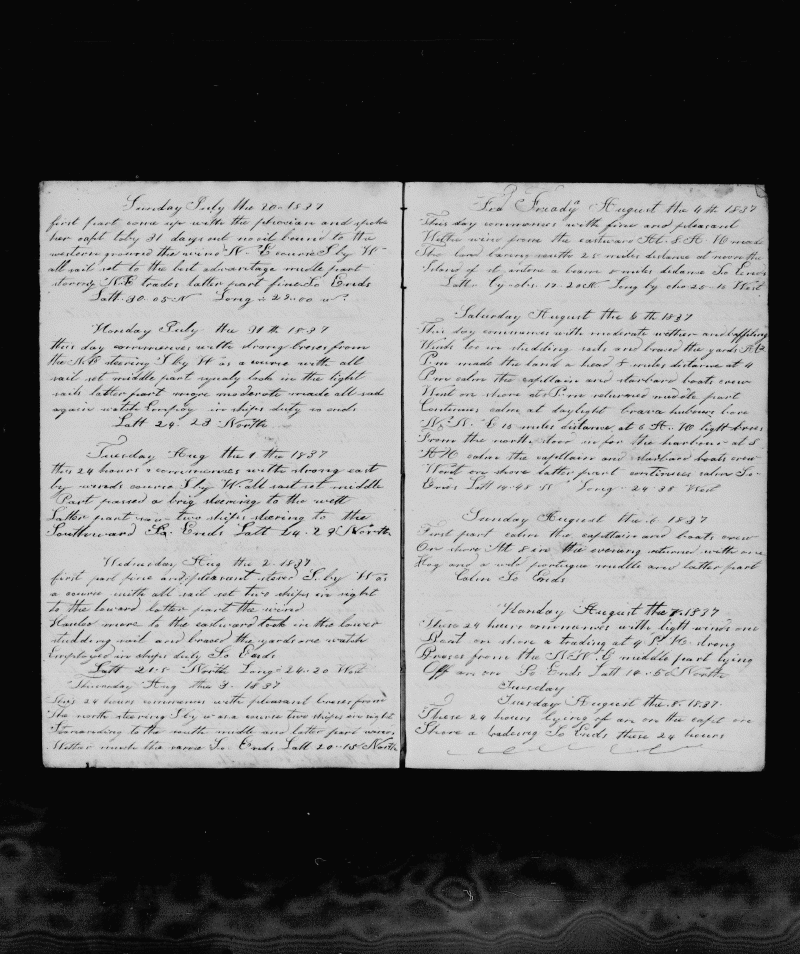 Sunday July the 30 1837
first part come up with the peruvian and spoke
her capt toby 31 days out no oil bound to the
western ground the wind N E course S by W
all sail set to the best advantage middle part
strong N.E. trades latter part fine So Ends
Latt 30.05 N Long 22.00 W
Monday July the 31 th 1837
this day commences with strong breses from
the N.E steering S by W as a course with all
sail set middle part took in the light
sails latter part more moderate made all sail
again watch Employ in ships duty so ends
Latt 27.23 North
Tuesday Aug the 1 the 1837
this 24 hours commences with strong east
by winds course S by W all sail set middle
Part passed a brig steering to the west
Latter part saw two ships steering to the
Southward So Ends Latt 24.29 North
Wednesday Aug the 2 1837
first part fine and pleasant stered S. by W as
a course with all sail set two ships in sight
to the leward latter part the wind
Hauled more to the eastward took in the lower
studding sail and brased the yards one watch
Employed in ships duty So Ends
Latt 21.8 North Long 24.20 West
Thursday Aug the 3 1837
This 24 hours commences with pleasant breses from
the north steering S by W as a course two ships in sight
Standing to the south middle and latter part winds
Wether much the same So Ends Latt 20.15 North
Fryday August the 4 th 1837
This day commences with fine and pleasant
Wether wind from the eastward At 8 A. M made
The land bearing south 25 miles distance at noon the
Island of st antone a beam 8 miles distance So Ends
Latt by obs 17.20 North Long by chro 25.10 West
Saturday August the 5 th 1837
This day commences with moderate wether and baffling
Winds too in studding sails and brased the yards At 2
P.m made the land a head 8 miles distance at 4
P.m calm the captain and starbard boats crew
Went on shore at P.m returned middle part
Continues calm at daylight brava harbour bore
N. E 10 miles distance at 6 A. M light breses
From the north stood in for the harbour at 8
A M calm the captain and starbard boats crew
Went on shore latter part continues calm So
Ends Latt 14.48 N Long 24.38 West
Sunday August the 6 1837
First part calm the captain and boats crew
On shore At 8 in the evening returned with one
Hog and a wild portugue middle and latter part
Calm So Ends
Monday August the 7. 1837
These 24 hours commences with light winds one
Boat on shore a trading at 4 P. M. strong
Breses from the N.N. E middle part lying
Off an on So Ends Latt 14.50 North
Tuesday
Tuesday August the 8. 1837
These 24 hours lying of an on the capt on
Shore a trading So Ends these 24 hours